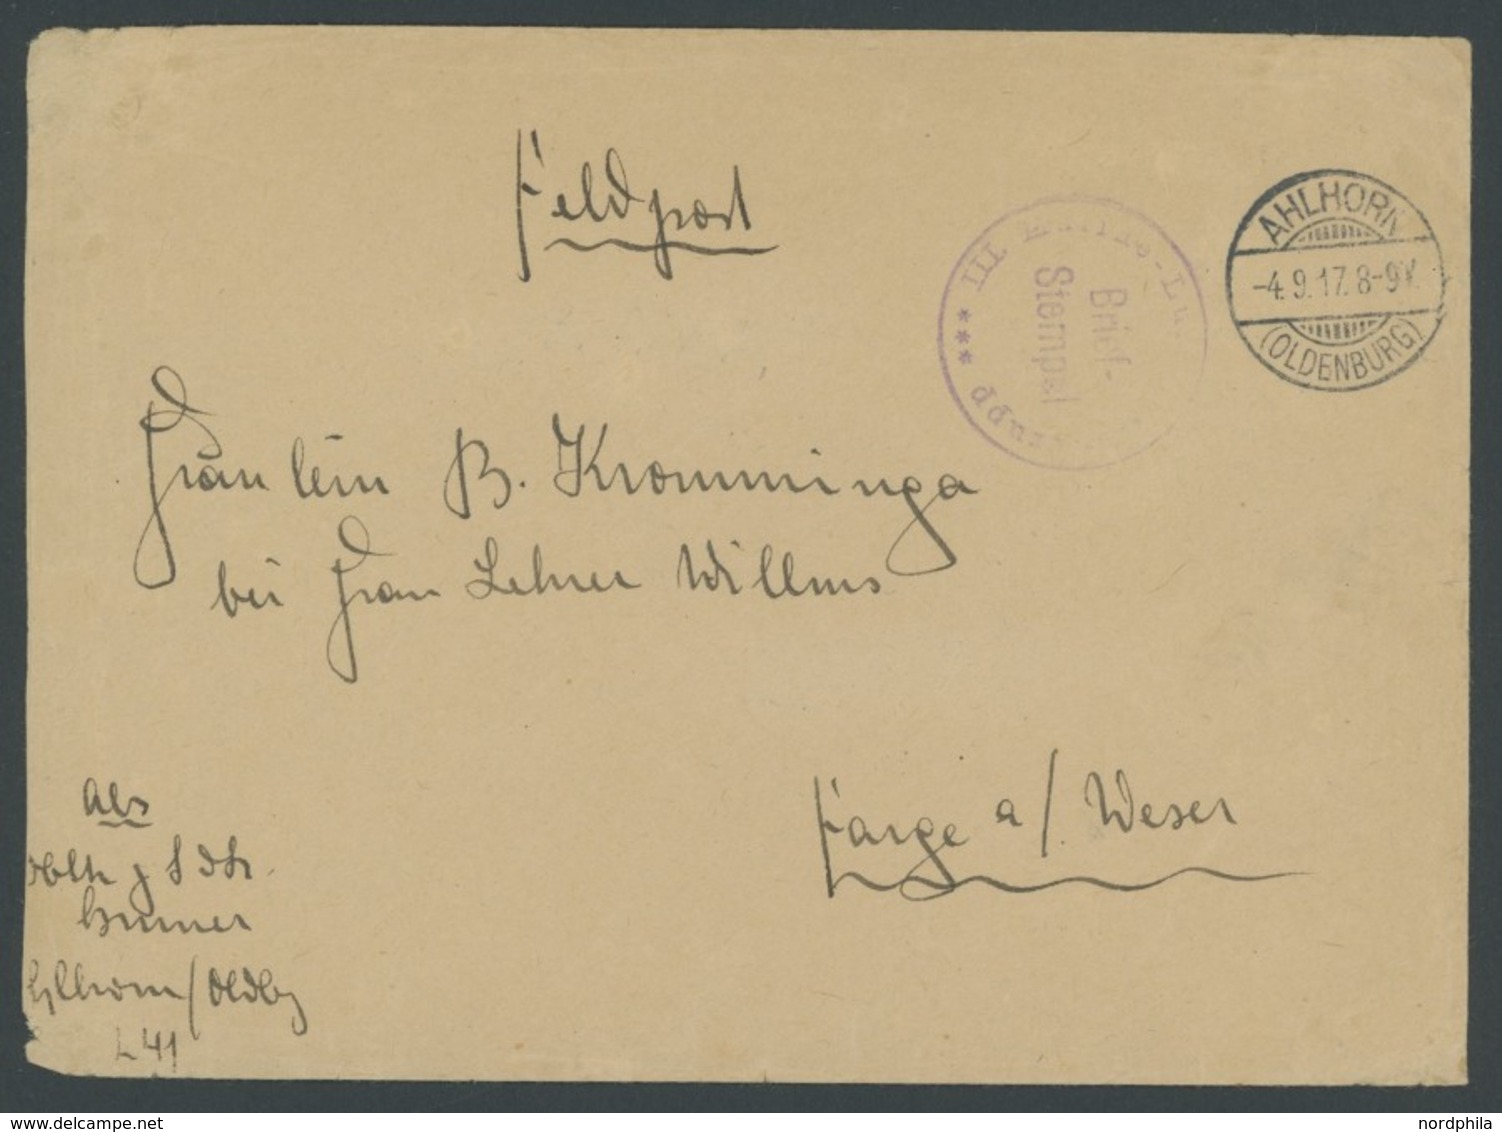 Feldpost
AHLHORN
-4.9.17. 8-9V.
(OLDENBURG)
Brief-
Stempel
III ***
Fräulein B. Kromminga
bei Frau Lehrer Willms
Farge a/ Weser
Abs
Ahlhorn/Oldbg
L 41
delcampe.net
nordphila